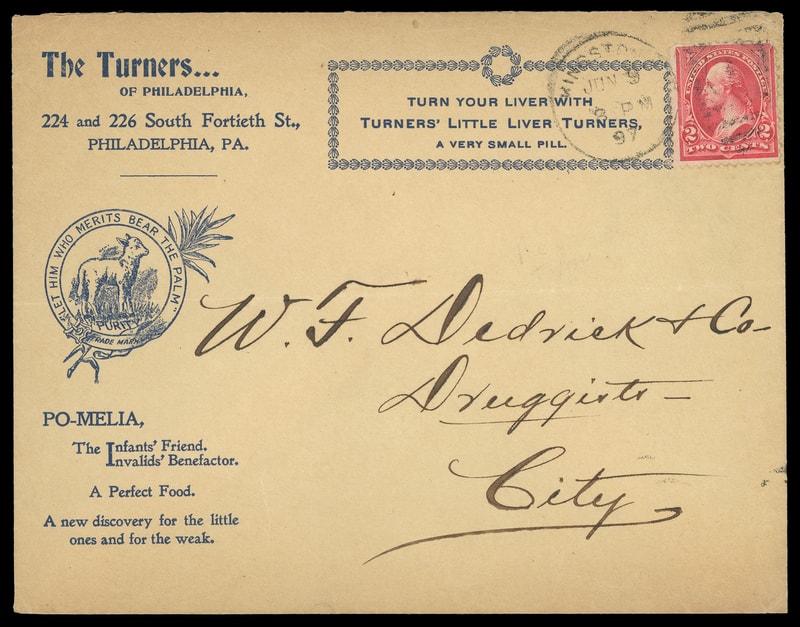 The Turners...
OF PHILADELPHIA,
224 and 226 South Fortieth St.,
PHILADELPHIA, PA.
TURN YOUR LIVER WITH
TURNERS' LITTLE LIVER TURNERS,
A VERY SMALL PILL.
KINGSTON
JUN 9
PM
97
UNITED STATES POSTAGE
2 2
TWO CENTS
"LET HIM WHO MERITS BEAR THE PALM"
PURITY
TRADE MARK
W. F. Dedrick & Co-
Druggists-
City
PO-MELIA,
The Infants' Friend.
Invalids' Benefactor.
A Perfect Food.
A new discovery for the little
ones and for the weak.